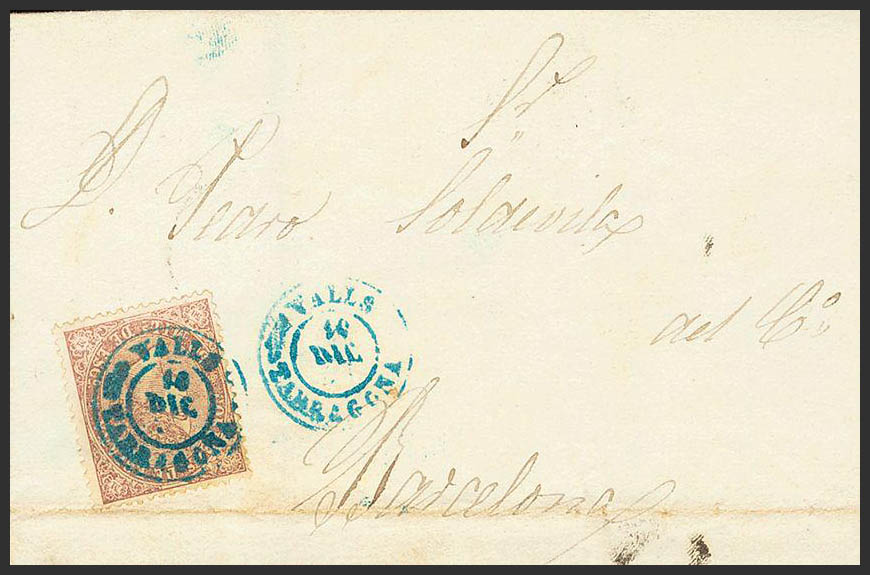 Sr.
D. Pedro Soldevila
del Co.
Barcelona
VALLS
16
DIC
TARRAGONA
VALLS
16
DIC
TARRAGONA